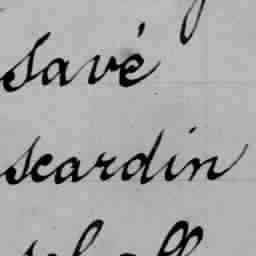 savé
scardin